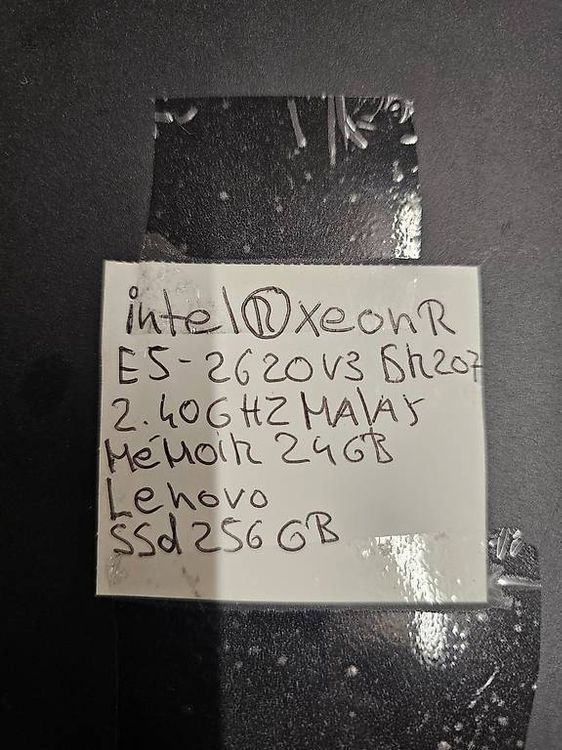 intel®xeonR
E5-2620V3
2.40GHZ MALAY
Mémoir 24GB
Lenovo
SSd 256 GB